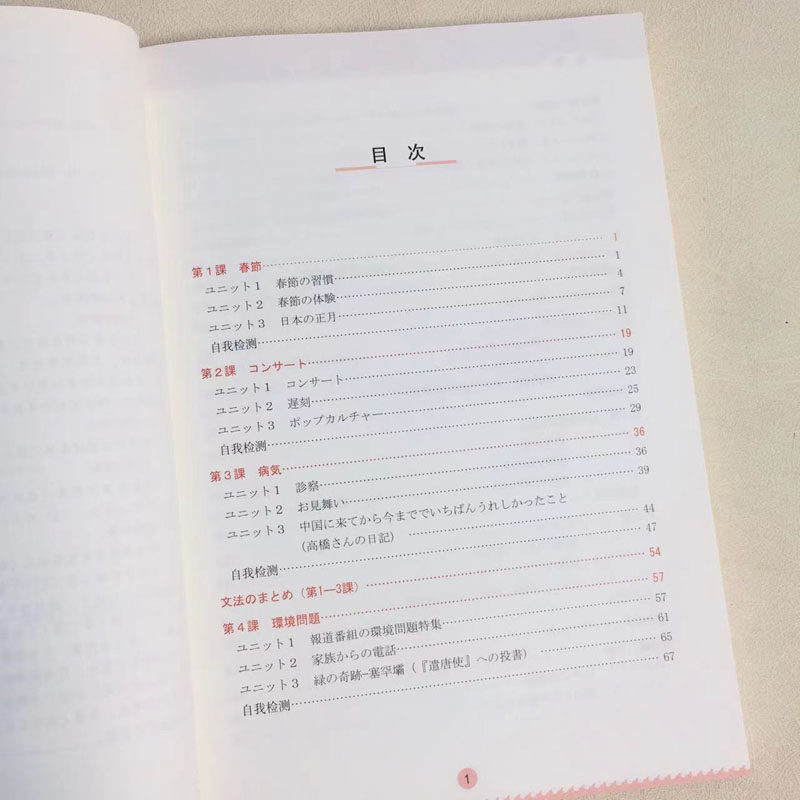 目 次
第1課 春節 1
ユニット1 春節の習慣 1
ユニット2 春節の体験 4
ユニット3 日本の正月 7
自我检测 11
第2課 コンサート 19
ユニット1 コンサート 19
ユニット2 遅刻 23
ユニット3 ポップカルチャー 25
自我检测 29
第3課 病気 36
ユニット1 診察 36
ユニット2 お見舞い 39
ユニット3 中国に来てから今まででいちばんうれしかったこと
(高橋さんの日記) 44
自我检测 47
文法のまとめ(第1—3課) 54
第4課 環境問題 57
ユニット1 報道番組の環境問題特集 57
ユニット2 家族からの電話 61
ユニット3 緑の奇跡-塞罕壩(『遣唐使』への投書) 65
自我检测 67
1